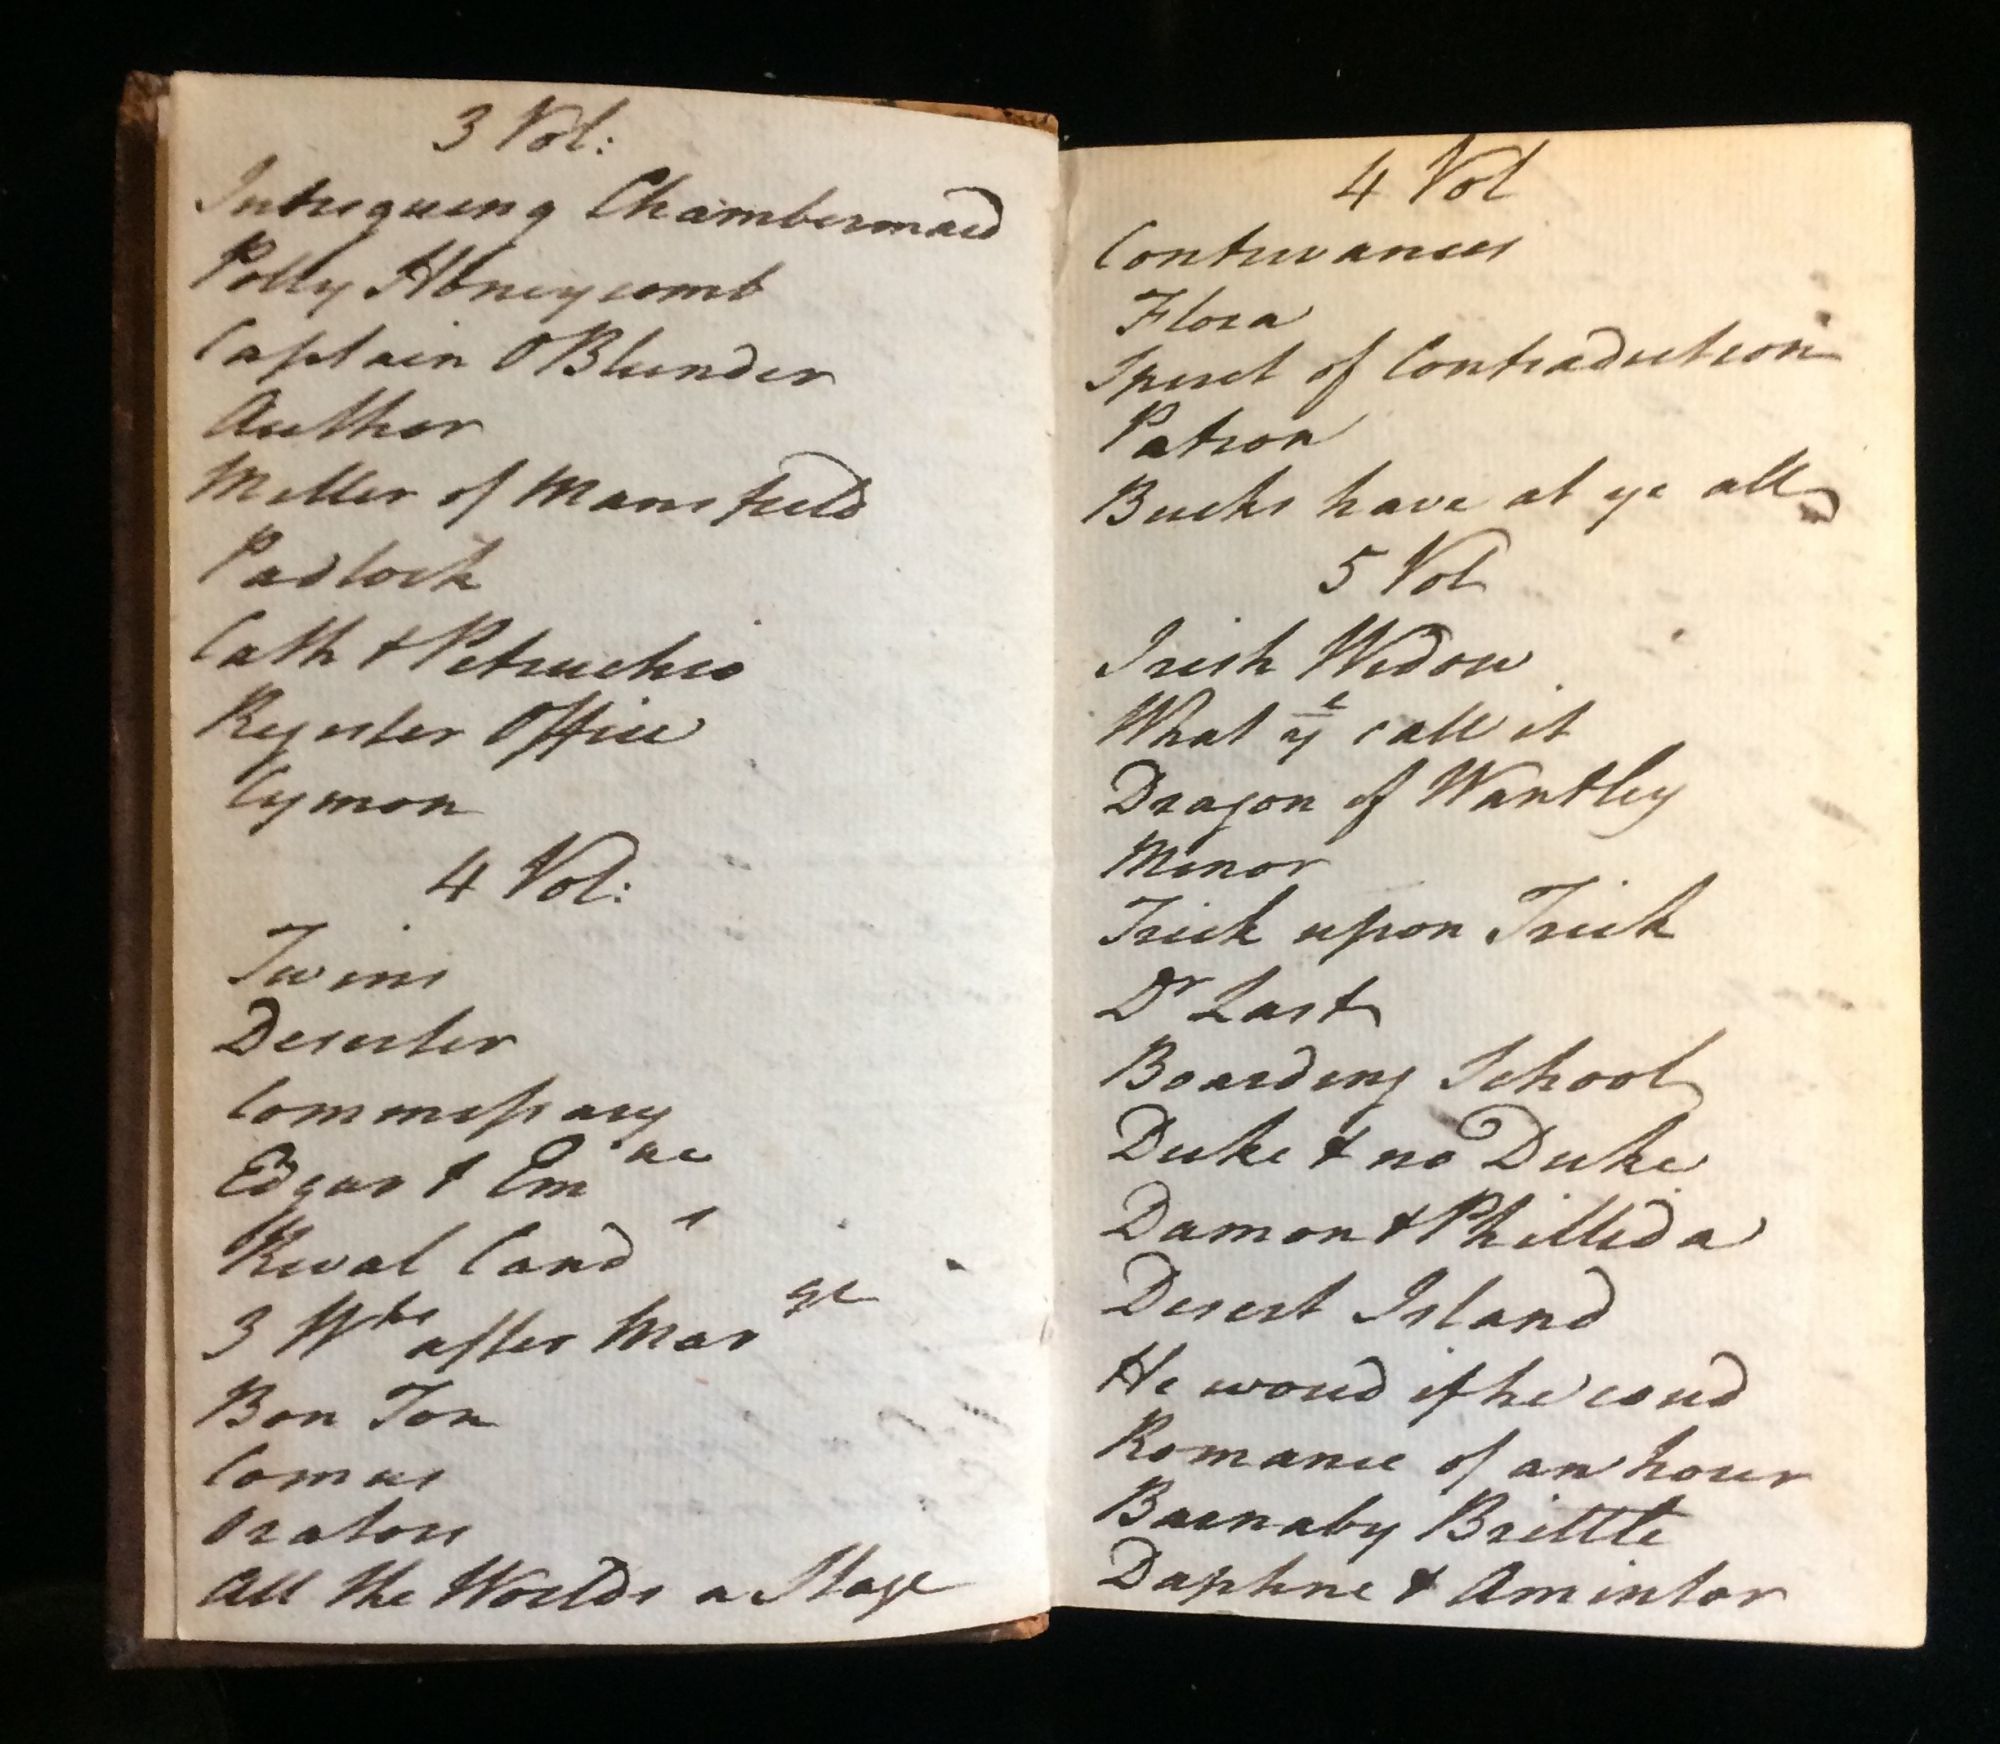 3 Vol:
Intrigueing Chambermaid
Polly Honeycomb
Captain OBlunder
Author
Miller of Mansfield
Padlock
Cath & Petruchio
Register Office
Cymon
4 Vol:
Twins
Deserter
Commissary
Edgar & Emne
Rival Cands
3 Wks after Marge
Bon Ton
Comus
Orators
All the Worlds a Stage
4 Vol
Contrivances
Flora
Spirit of Contradiction
Patron
Bucks have at ye all
5 Vol
Irish Widow
What ye call it
Dragon of Wantley
Minor
Trick upon Trick
Dr Last
Boarding School
Duke & no Duke
Damon & Phillida
Desert Island
He woud if he coud
Romance of an hour
Barnaby Brittle
Daphne & Amintor